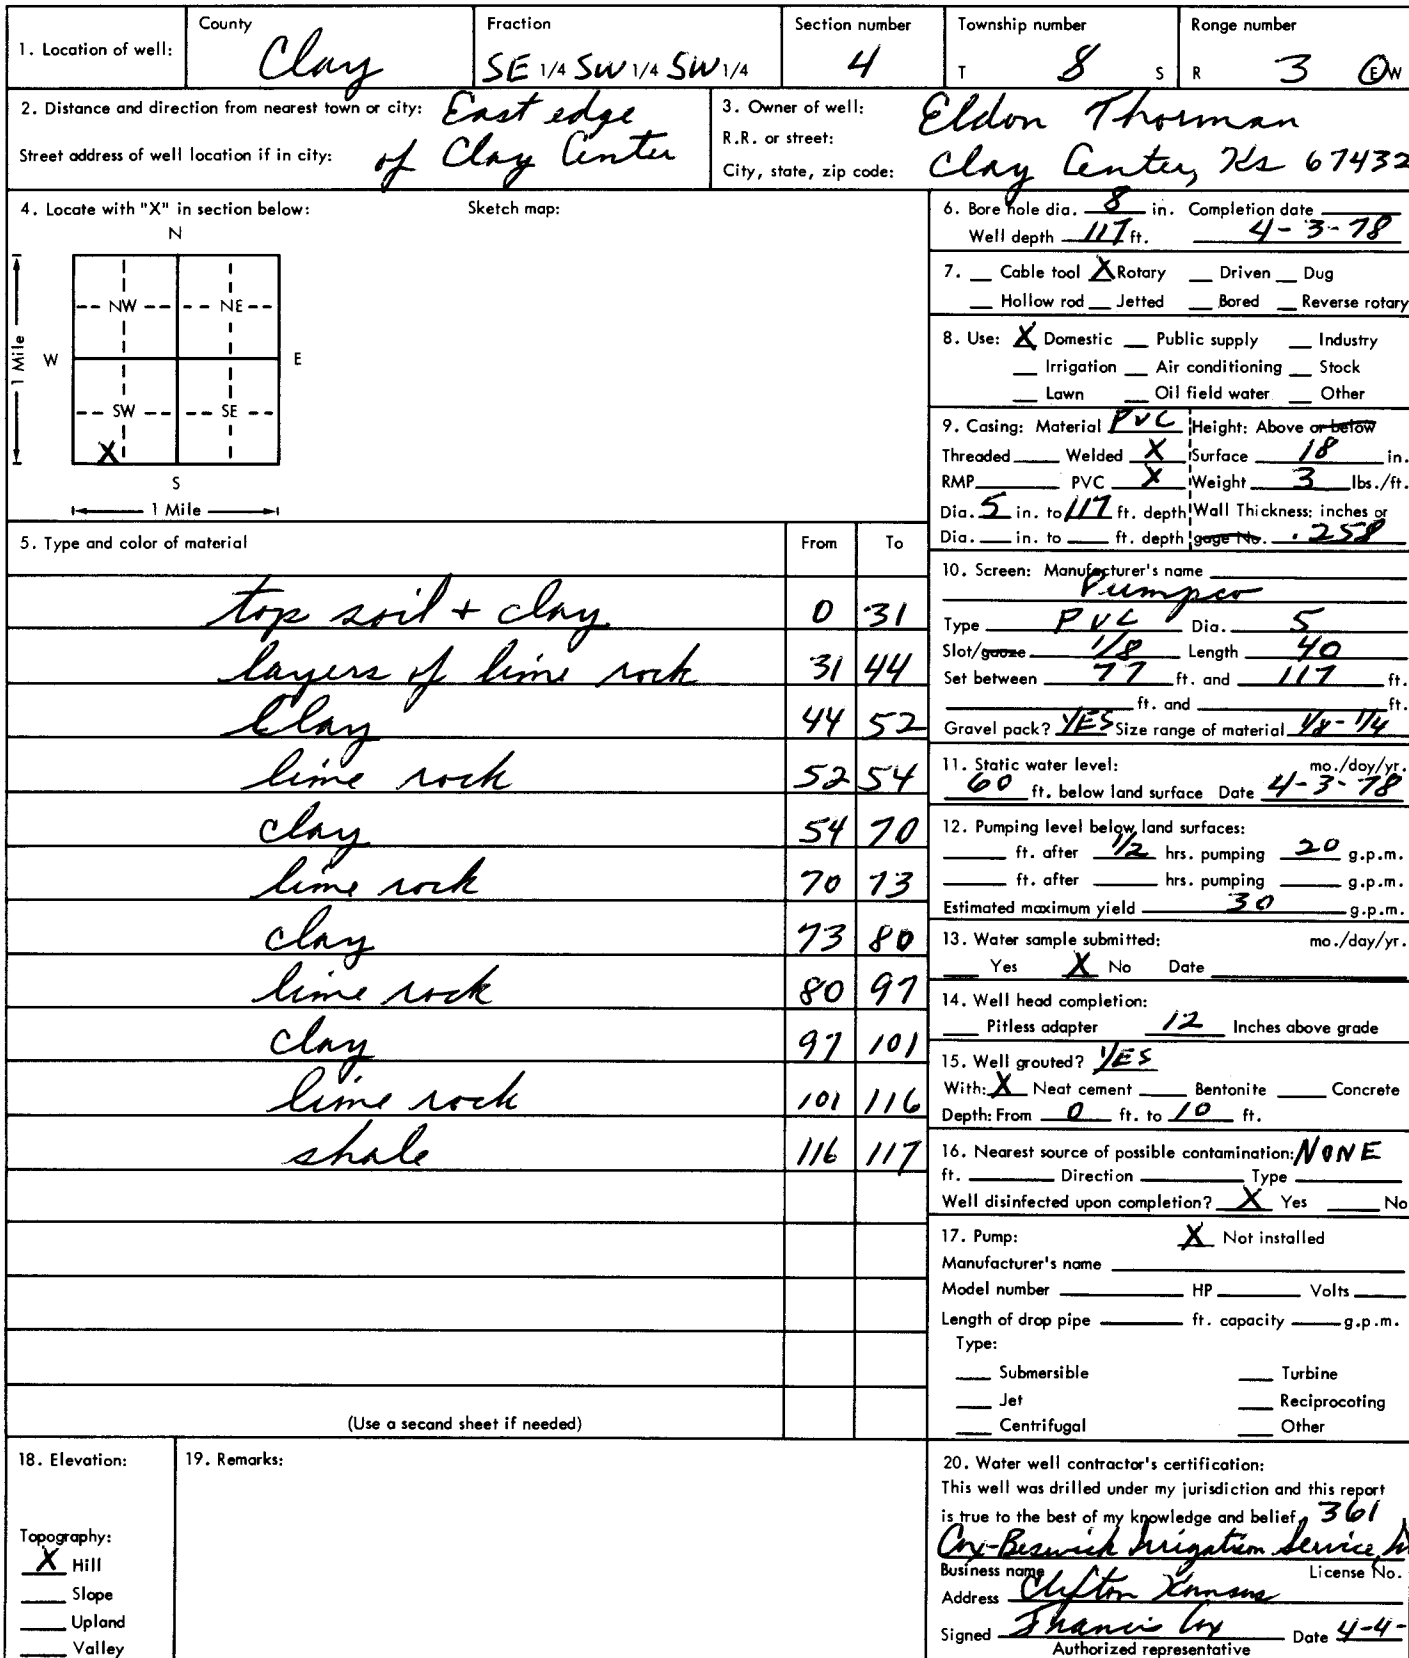 1. Location of well: County Clay Fraction SE 1/4 SW 1/4 SW 1/4 Section number 4 Township number T 8 S Range number R 3 E W
2. Distance and direction from nearest town or city: East edge
Street address of well location if in city: of Clay Center
3. Owner of well: Eldon Thorman
R.R. or street:
City, state, zip code: Clay Center, Ks 67432
4. Locate with "X" in section below: Sketch map:
N
NW NE
W E
1 Mile
SW SE
X
S
1 Mile
5. Type and color of material From To
top soil + clay 0 31
layers of lime rock 31 44
Clay 44 52
lime rock 52 54
clay 54 70
lime rock 70 73
clay 73 80
lime rock 80 97
clay 97 101
lime rock 101 116
shale 116 117
(Use a second sheet if needed)
6. Bore hole dia. 8 in. Completion date
Well depth 117 ft. 4-3-78
7. __ Cable tool X Rotary __ Driven __ Dug
__ Hollow rod __ Jetted __ Bored __ Reverse rotary
8. Use: X Domestic __ Public supply __ Industry
__ Irrigation __ Air conditioning __ Stock
__ Lawn __ Oil field water __ Other
9. Casing: Material PVC Height: Above or below
Threaded ____ Welded X Surface 18 in.
RMP ____ PVC X Weight 3 lbs./ft.
Dia. 5 in. to 117 ft. depth Wall Thickness: inches or
Dia. __ in. to __ ft. depth gage No. .258
10. Screen: Manufacturer's name
Pumpco
Type PVC Dia. 5
Slot/gauze 1/8 Length 40
Set between 77 ft. and 117 ft.
____ ft. and ____ ft.
Gravel pack? YES Size range of material 1/8-1/4
11. Static water level: mo./day/yr.
60 ft. below land surface Date 4-3-78
12. Pumping level below land surfaces:
____ ft. after 1/2 hrs. pumping 20 g.p.m.
____ ft. after ____ hrs. pumping ____ g.p.m.
Estimated maximum yield 30 g.p.m.
13. Water sample submitted: mo./day/yr.
__ Yes X No Date ____
14. Well head completion:
__ Pitless adapter 12 Inches above grade
15. Well grouted? YES
With: X Neat cement __ Bentonite __ Concrete
Depth: From 0 ft. to 10 ft.
16. Nearest source of possible contamination: NONE
ft. ____ Direction ____ Type ____
Well disinfected upon completion? X Yes ____ No
17. Pump: X Not installed
Manufacturer's name ____
Model number ____ HP ____ Volts ____
Length of drop pipe ____ ft. capacity ____ g.p.m.
Type:
__ Submersible __ Turbine
__ Jet __ Reciprocating
__ Centrifugal __ Other
18. Elevation:
Topography:
X Hill
__ Slope
__ Upland
__ Valley
19. Remarks:
20. Water well contractor's certification:
This well was drilled under my jurisdiction and this report
is true to the best of my knowledge and belief. 361
Cox-Beswick Irrigation Service
Business name License No.
Address Clifton Kansas
Signed Francis Cox Date 4-4-
Authorized representative